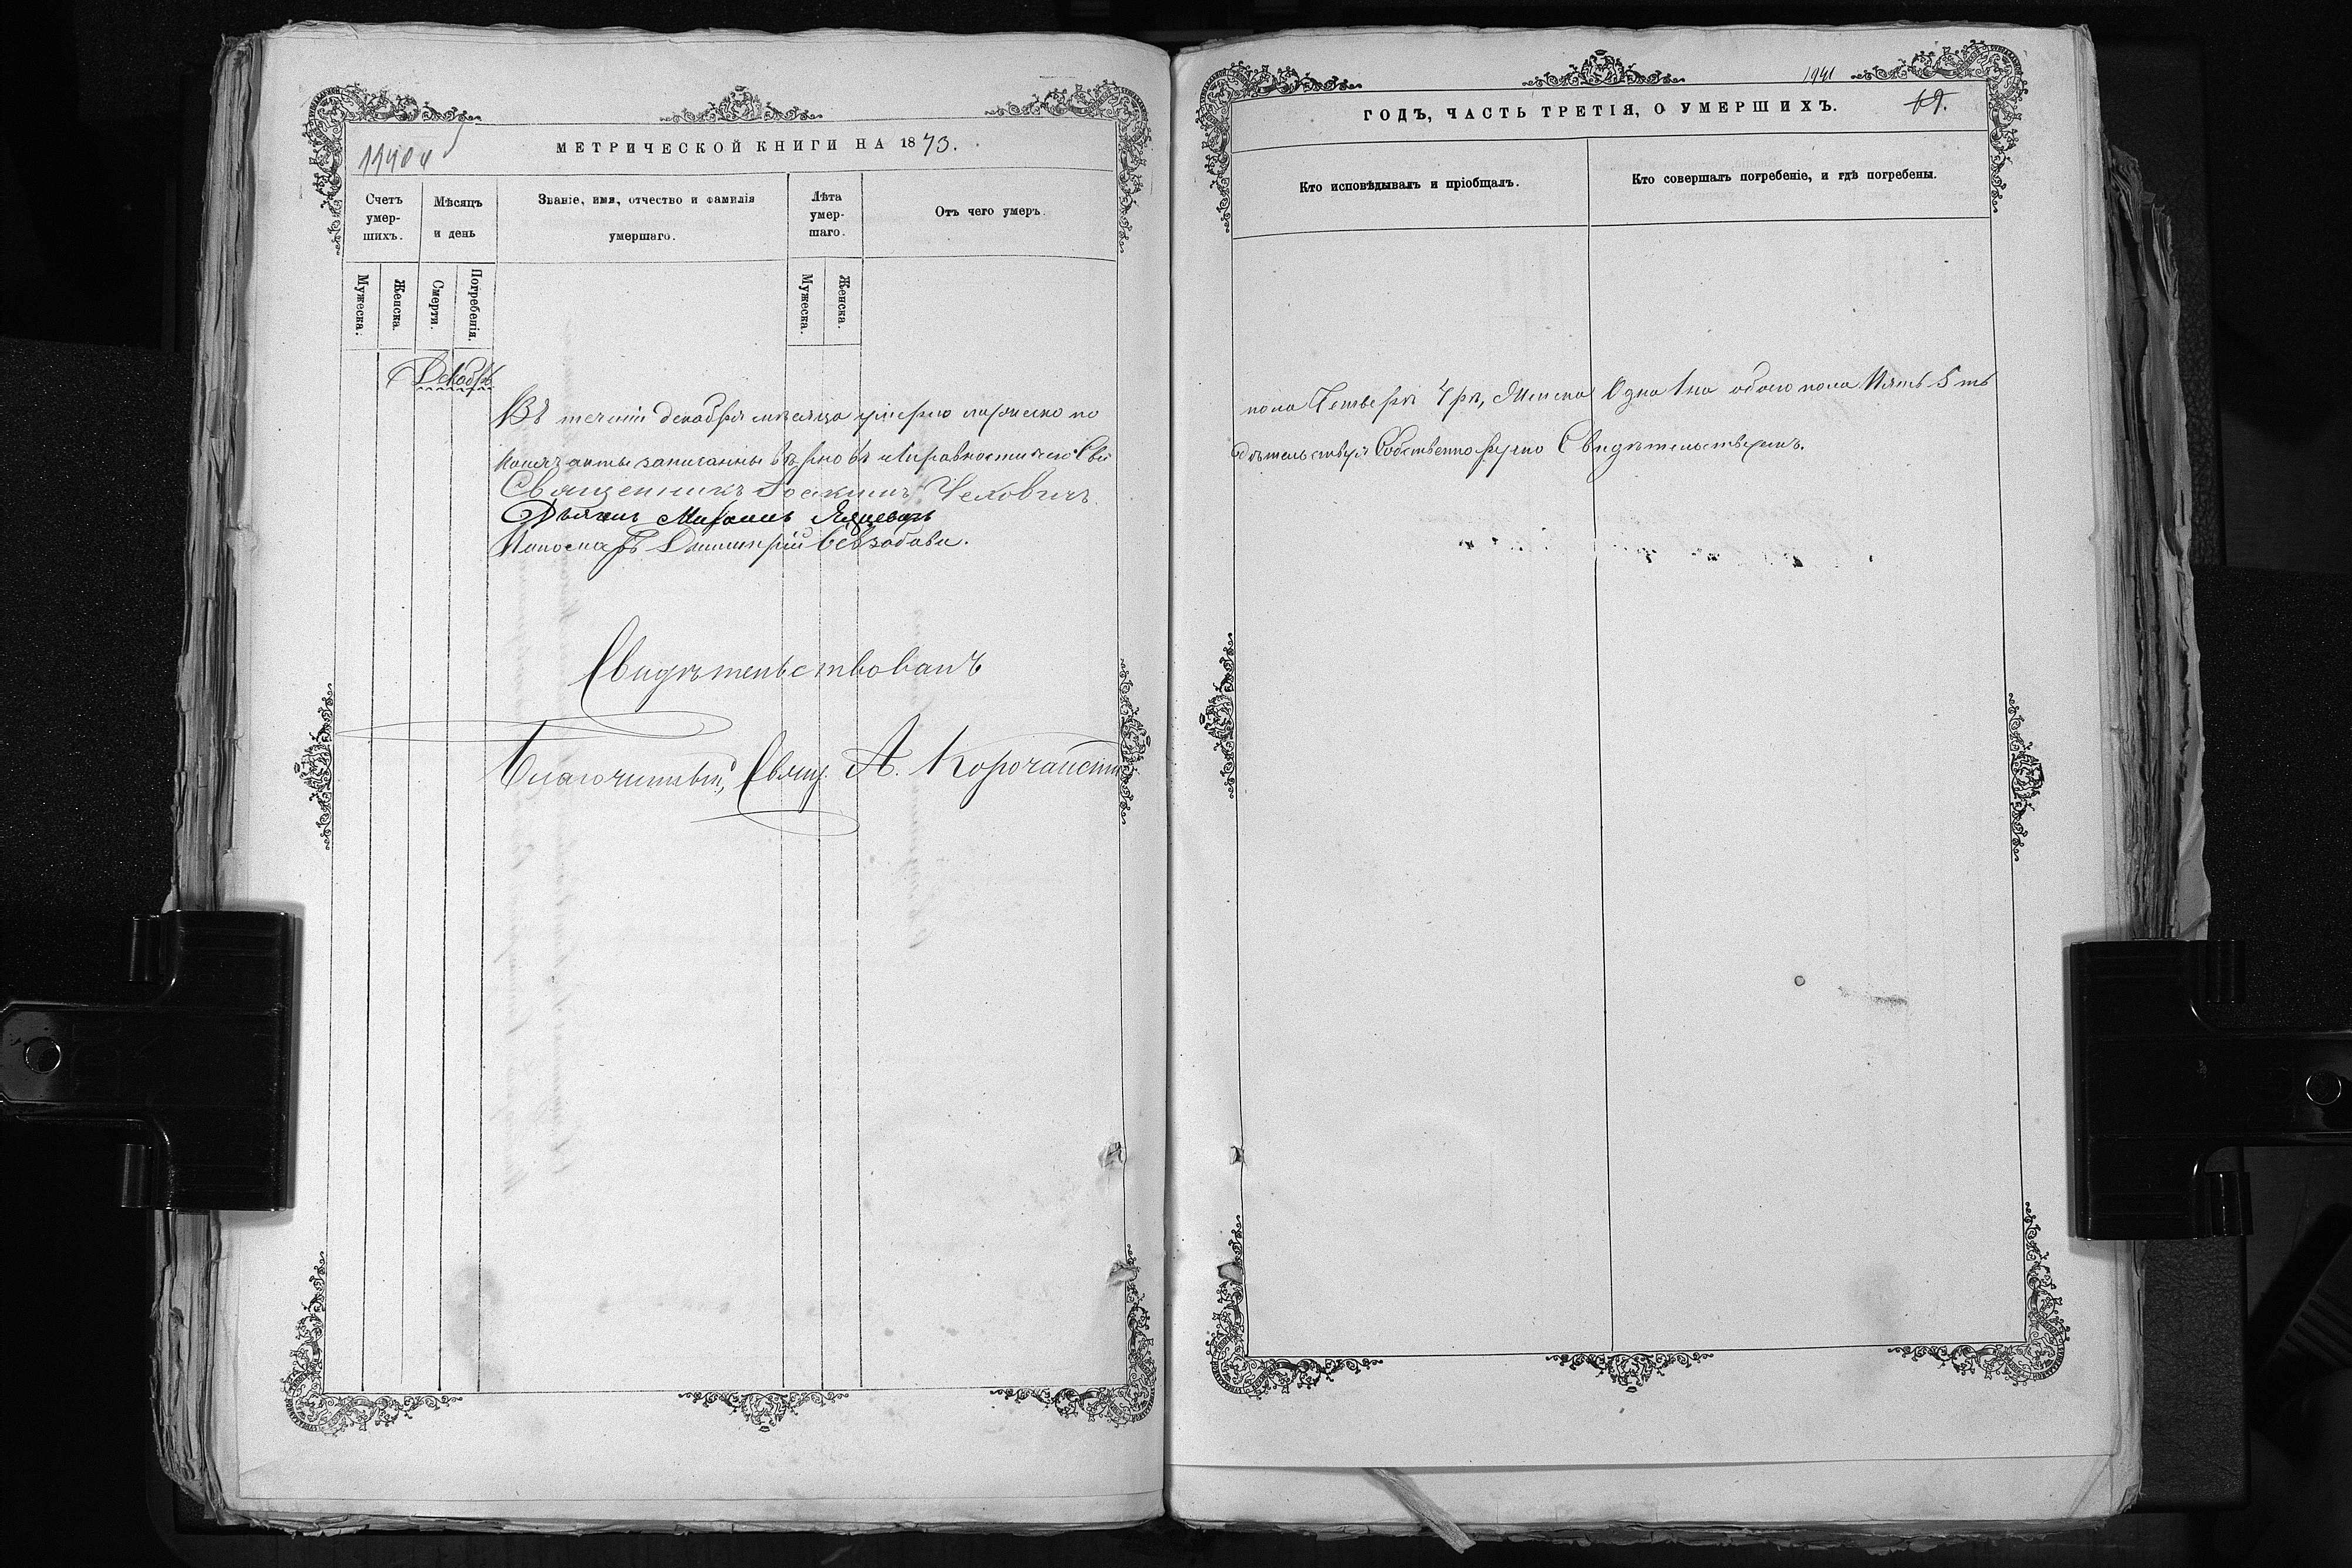 МЕТРИЧЕСКОЙ КНИГИ НА 1873.
Счетъ умер-шихъ.
Мѣсяцъ и день
Званіе, имя, отчество и фамилія умершаго.
Лѣта умер-шаго.
Отъ чего умеръ.
Мужеска.
Женска.
Смерти.
Погребенія.
Мужеска.
Женска.
Декабрь
Въ теченіи декабря мѣсяца умерло мужеско по
акты записанны вѣрно въ исправности чего Сви
Священникъ Іоакимъ Чеховичъ
Дьякъ
Пономарь Димитрій
Свидѣтельствовалъ
Благочинный, Свящ. А.
1941
ГОДЪ, ЧАСТЬ ТРЕТІЯ, О УМЕРШИХЪ.
69.
Кто исповѣдывалъ и пріобщалъ.
Кто совершалъ погребеніе, и гдѣ погребены.
пола Четверо 4ро, Женска Одна 1на обоего пола Пять 5ть
дѣтельствуя Собственноручно Свидѣтельствуемъ.